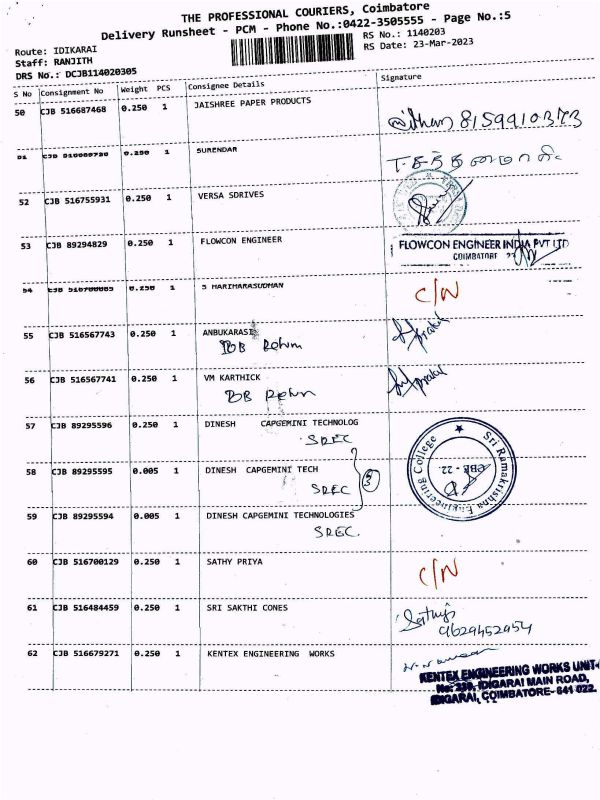 THE PROFESSIONAL COURIERS, Coimbatore
Delivery Runsheet - PCM - Phone No.:0422-3505555 - Page No.:5
Route: IDIKARAI
Staff: RANJITH
DRS No.: DCJB114020305
RS No.: 1140203
RS Date: 23-Mar-2023
S No Consignment No Weight PCS Consignee Details Signature
50 CJB 516687468 0.250 1 JAISHREE PAPER PRODUCTS
8159910373
0.250 1 SURENDAR
52 CJB 516755931 0.250 1 VERSA SDRIVES
53 CJB 89294829 0.250 1 FLOWCON ENGINEER
FLOWCON ENGINEER INDIA PVT LTD
COIMBATORE
54 0.250 1 S HARIHARASUDHAN C/N
55 CJB 516567743 0.250 1 ANBUKARASI
56 CJB 516567741 0.250 1 VM KARTHICK
57 CJB 89295596 0.250 1 DINESH CAPGEMINI TECHNOLOG
SREC
58 CJB 89295595 0.005 1 DINESH CAPGEMINI TECH
SREC
3
Sri Ramakrishna Engineering College
59 CJB 89295594 0.005 1 DINESH CAPGEMINI TECHNOLOGIES
SREC.
60 CJB 516700129 0.250 1 SATHY PRIYA C/N
61 CJB 516484459 0.250 1 SRI SAKTHI CONES
9629452954
62 CJB 516679271 0.250 1 KENTEX ENGINEERING WORKS
KENTEX ENGINEERING WORKS UNIT-
No: 239, IDIGARAI MAIN ROAD,
IDIGARAI, COIMBATORE- 641 022.